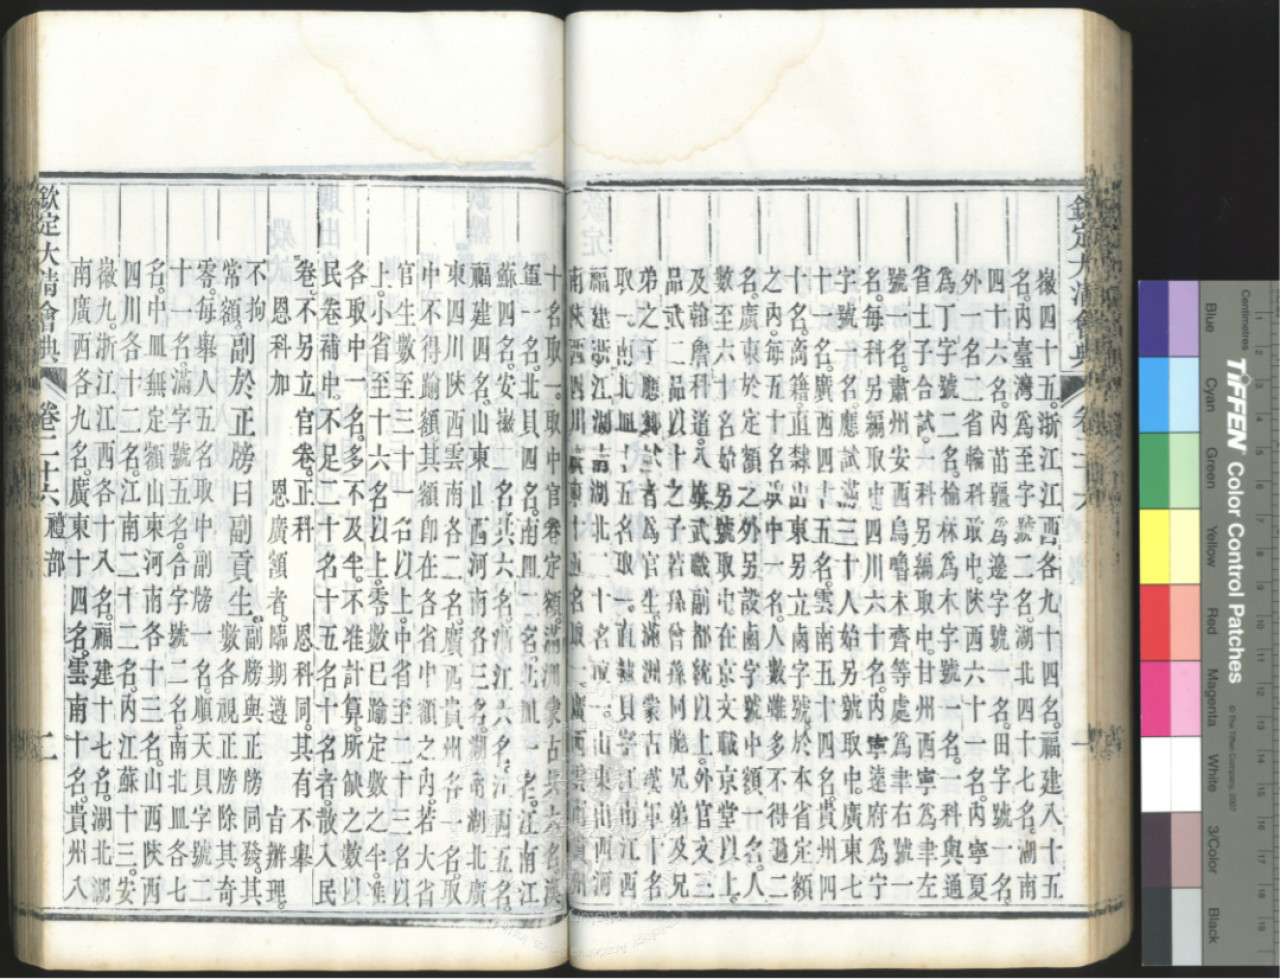 徽四十五。浙江江西各九十四名。福建八十五
名。內臺灣爲至字號二名。湖北四十七名。湖南
四十六名。內苗疆爲邊字號一名。田字號一名。
外一名。二省輪科取中。陝西六十一名。內寧夏
爲丁字號二名。榆林爲木字號一名。一科與通
省士子合試。一科另編取中。甘州西寧爲聿左
號一名。肅州安西烏嚕木齊等處爲聿右號一
名。每科另編取中。四川六十名。內寧遠府爲寧
字號一名。應試滿三十人始另號取中。廣東七
十一名。廣西四十五名。雲南五十四名。貴州四
十名。商籍直隸山東另立鹵字號。於本省定額
之內。每五十名取中一名。人數雖多不得過二
名。廣東於定額之外另設鹵字號中額一名。人
數至六十名始另號取中。在京文職京堂以上。
及翰詹科道。八旗武職副都統以上。外官文三
品武二品以上之子若孫曾孫同胞兄弟及兄
弟之子應鄉試者爲官生。滿洲蒙古漢軍十名
取一。南北皿十五名取一。直隸貝字江南江西
福建浙江湖南湖北二十名取一。山東山西河
南陝西四川廣東十五名取一。廣西雲南貴州
十名取一。取中官卷定額。滿洲蒙古共六名。漢
軍一名。北貝四名。南皿二名。北皿一名。江南江
蘇四名。安徽二名。共六名。浙江六名。江西五名。
福建四名。山東山西河南各三名。湖南湖北廣
東四川陝西雲南各二名。廣西貴州各一名。取
中不得踰額。其額卽在各省中額之內。若大省
官生數至三十一名以上。中省至二十三名以
上。小省至十六名以上。零數已踰定數之半。准
各取中一名。多不及半。不准計算。所缺之數以
民卷補中。不足二十名十五名十名者。散入民
卷。不另立官卷。正科 恩科同。其有不舉
恩科加 恩廣額者。臨期遵 旨辦理。
不拘常額。副於正牓曰副貢生。副牓與正牓同發。其
數各視正牓除其奇
零。每舉人五名取中副牓一名。順天貝字號二
十一名。滿字號五名。合字號二名。南北皿各七
名。中皿無定額。山東河南各十三名。山西陝西
四川各十二名。江南二十二名。內江蘇十三。安
徽九。浙江江西各十八名。福建十七名。湖北湖
南廣西各九名。廣東十四名。雲南十名。貴州八
欽定大淸會典 卷三十六 禮部 二